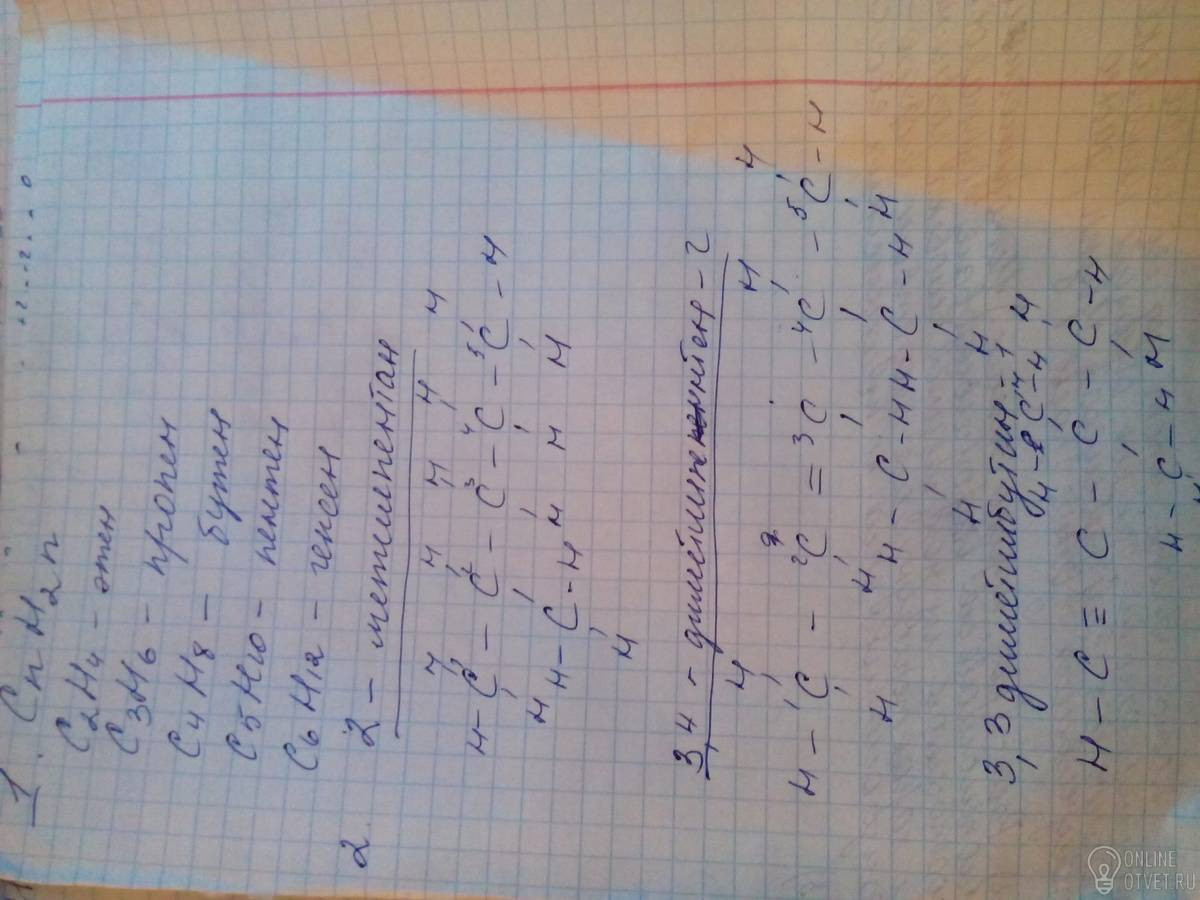 1. CnH2n
C2H4 - этен
C3H6 - пропен
C4H8 - бутен
C5H10 - пентен
C6H12 - гексен
2. 2 - метилпентан
H H H H H
H - C - C - C - C - C - H
H H - C - H H H H
H
3,4 - диметилпентен - 2
H H H
H - C - C = C - C - C - H
H H H - C - H H - C - H H
H H
3,3 диметилбутин - 1
H - C - H H
H - C ≡ C - C - C - H
H - C - H H
H
ONLINE
OTVET.RU